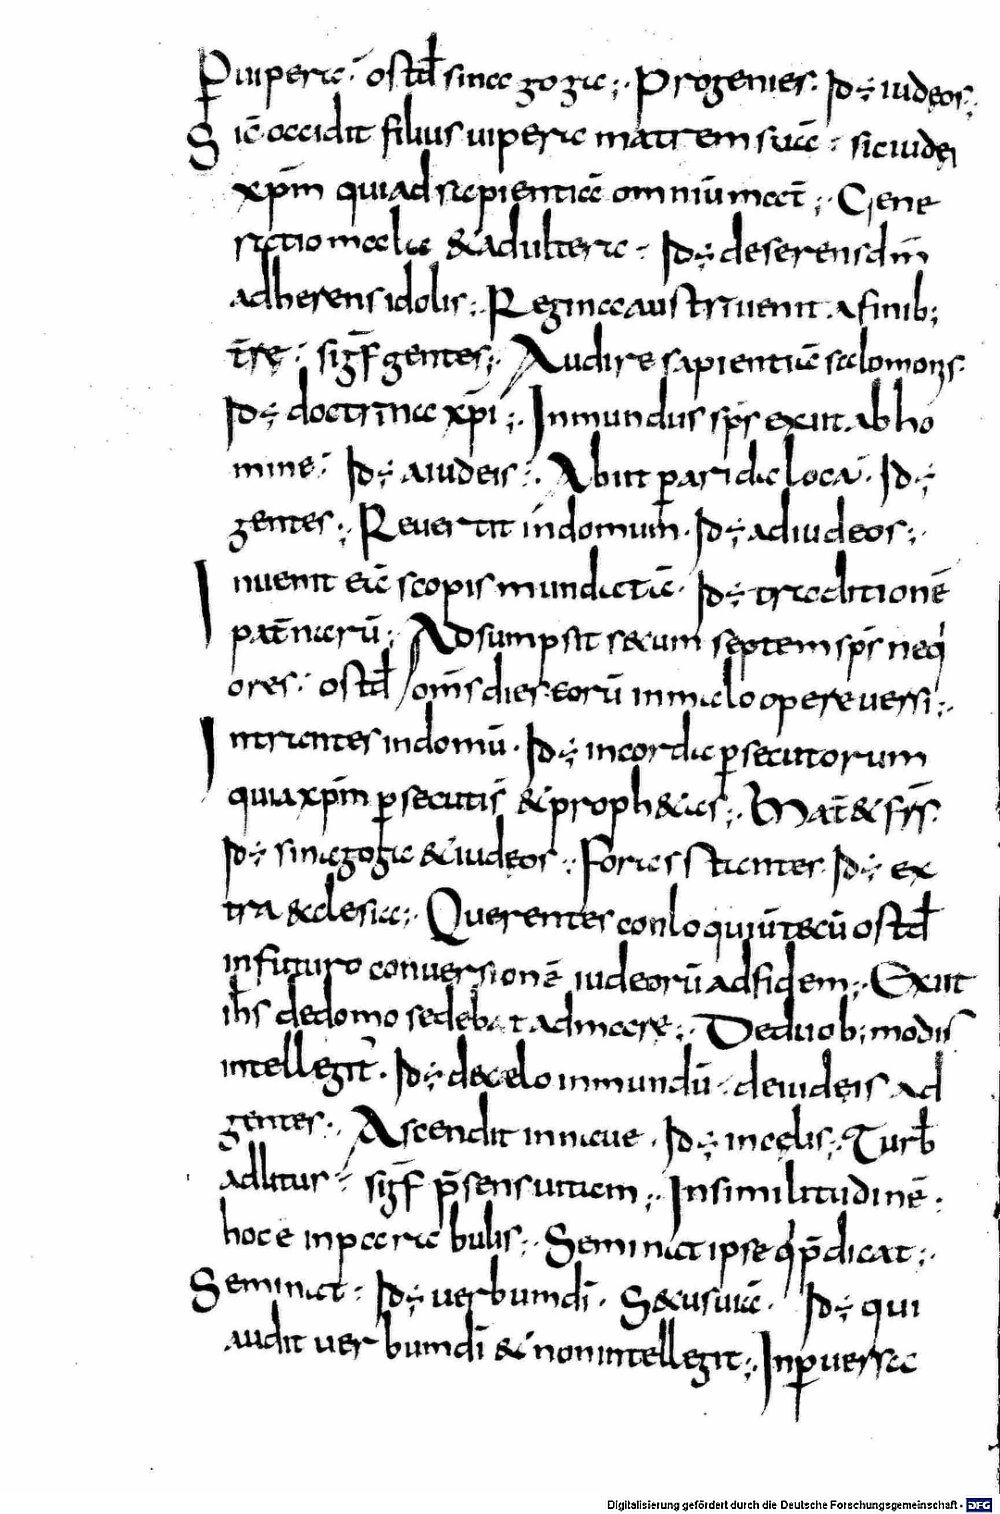 P̱ uiperā · ostd̄ sinagoga ;· Progenies · Id÷ iudeos ;
Sic̄ occidit filius uipera matrem suā : sic iudei
xpm̄ quia d sapientiā omniū mact̄ ;· Gene
ratio mala & adultera · Id÷ deserens dm̄
adherens idolis ;· Regina austri uenit · a finib;
tr̄re · sigf̄ gentes ;· Audire sapientiā salomonis ·
Id÷ doctrina xpi ;· Inmundus sps̄ exiit ab ho
mine · Id÷ a iudeis ;· Abiit ꝑ arida loca · Id÷
gentes ;· Reuertit in domum · Id÷ ad iudeos ;·
Inuenit eā scopis mundatā · Id÷ traditionē
pat̄narū ;· Adsumpsit secum septem sps̄ neq
ores · ostd̄ om̄s dies eorū in malo opere uersi ;·
Intrantes in domū · Id÷ in corda ꝑsecutorum
quia xpm̄ ꝑsecuti s̄ & proph&as ;· Mat̄ & frs̄ ·
Id÷ sinagoga & iudeos ;· Foras stantes · Id÷ ex
tra ecclesia ;· Querentes conloquiū tecū ostd̄
in futuro conuersionē iudeorū ad fidem ;· Exiit
ihs̄ de domo sedebat ad mare ;· De duob; modis
intellegit᾽ · Id÷ de celo in mundū · de iudeis ad
gentes · Ascendit in naue · Id÷ in celis ;· Turb̄
ad litus · sigf̄ p̄sens uitam ;· In similitudinē ·
hoc e in parabulis ;· Seminat ipse q p̄dicat ;·
Seminat · Id÷ uerbum dī · Secus uiā · Id÷ qui
audit uerbum dī & non intellegit ;· In ꝑuersa
Digitalisierung gefördert durch die Deutsche Forschungsgemeinschaft - DFG